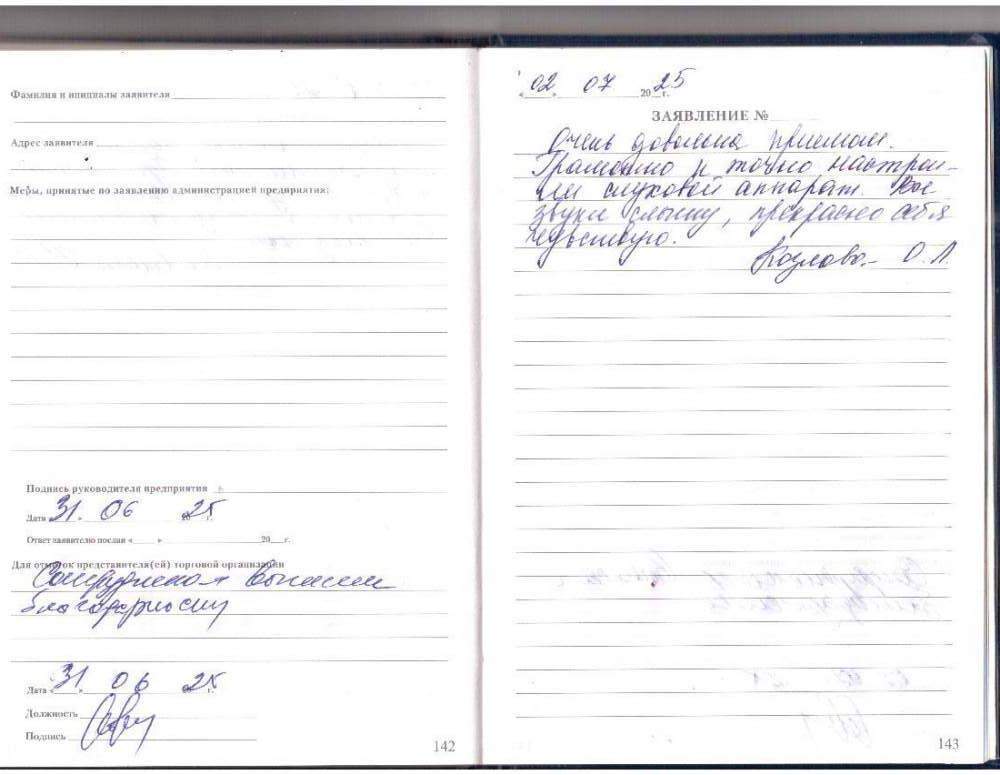 Фамилия и инициалы заявителя
Адрес заявителя
Меры, принятые по заявлению администрацией предприятия:
Подпись руководителя предприятия
Дата « 31. 06 20 25 г.
Ответ заявителю послан « » 20 г.
Для отметок представителя(ей) торговой организации
Сотрудникам вынесли
благодарность
Дата « 31 » 06 20 25 г.
Должность
Подпись
142
« 02 » 07 20 25 г.
ЗАЯВЛЕНИЕ №
Очень довольна приемом.
Грамотно и точно настрои-
ли слуховой аппарат. Все
звуки слышу, прекрасно себя
чувствую.
Козлова О. Л.
143